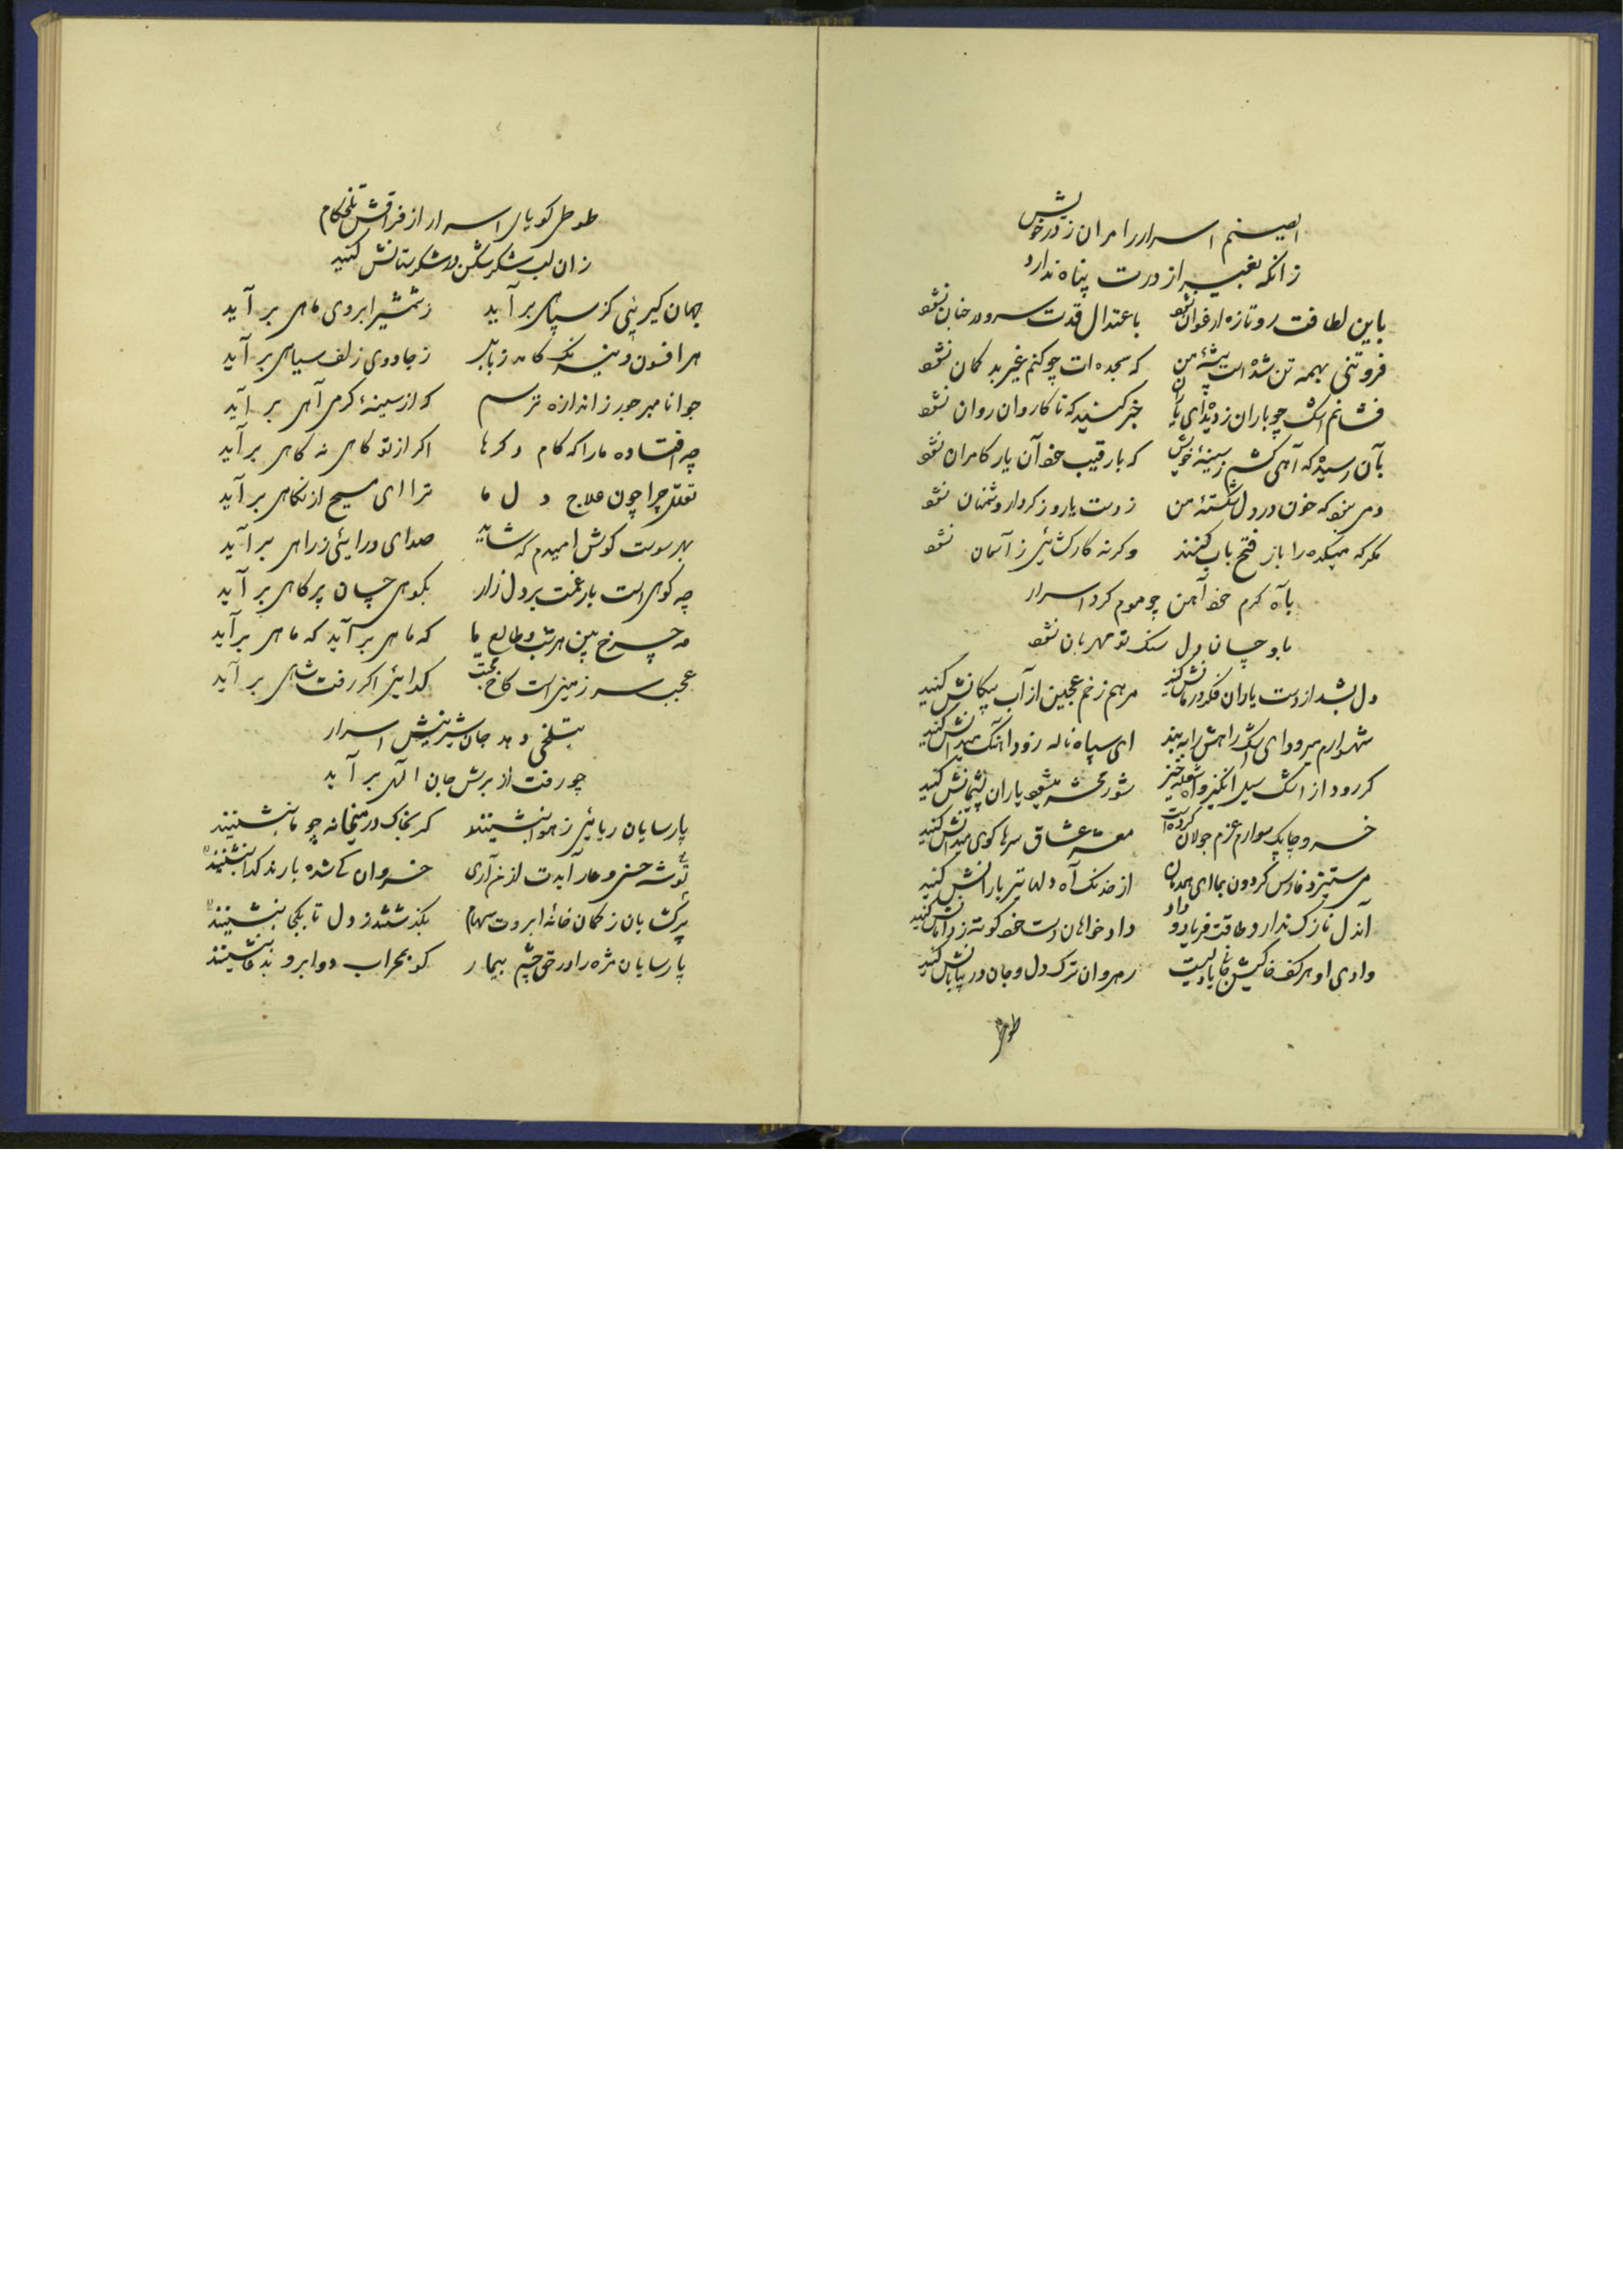 ایصنم اسرار را مران ز در خویش
زانکه بغیر از درت پناه ندارد
باین لطافت رو تازه ارغوان نشود باعتدال قدت سرو در جنان نشود
فروتنی بهمه تن شده است پیشهٔ من که سجده ات چو کنم غیر بد کمان نشود
فشانم اشک چو باران ز دیده ای یاران خبر کنید که تا کاروان روان نشود
بآن رسیده که آهی کشم ز سینهٔ خویش که با رقیب خود آن یار کامران نشود
دمی نبود که خون در دل شکستهٔ من ز دست یار و ز کردار دشمنان نشود
مکر که میکده را باز فتح باب کنند وکرنه کار کشائی ز آسمان نشود
بآه کرم خود آهن چو موم کرد اسرار
باو چسان دل سنک تو مهربان نشود
دل بشد از دست یاران فکر درمانش کنید مرهم زخم عجین از آب پیکانش کنید
شهسوارم میرود ای اشک راهش را ببند ای سپاه ناله زود آهنک میدانش کنید
کر رود از اشک سیل انکیز و آه شعله خیز شور محشر میشود یاران پشیمانش کنید
خسرو چابک سوارم عزم جولان کرده است معشر عشاق سرها کوی میدانش کنید
می ستیزد فارس کردون بما ای همدمان از خدنک آه دلها تیر بارانش کنید
آن دل نازک ندارد طاقت فریاد و داد داد خواهان دست خود کوته ز دامانش کنید
وادی او هر کف خاکیش جانها دلیست رهروان ترک دل و جان در بیابانش کنید
طوطی
طوطی کویای اسرار از فراقش تلخکام
زان لب شکر شکن در شکرستانش کنید
جهان کیرئی کز سپاهی بر آید ز شمشیر ابروی ماهی بر آید
هر افسون و نیرنک کامد ز بابل ز جادوی زلف سیاهی بر آید
جوانا مبر جور ز اندازه ترسم که از سینهٔ کرمی آهی بر آید
چه افتاده ما را که کام دکرها اکر از تو کاهی نه کاهی بر آید
تعلل چرا چون علاج دل ما ترا ای مسیح از نکاهی بر آید
بهر سوست کوش امیدم که شاید صدای درائی ز راهی بر آید
چه کوهی است بار غمت بر دل زار بکوهی چسان پر کاهی بر آید
مه چرخ بین هر شب و طالع ما که ماهی بر آید که ماهی بر آید
عجب سرزمینی است کاخ محبت کدائی اکر رفت شاهی بر آید
بتلخی دهد جان شیرینش اسرار
چو رفت از برش جان الهی بر آید
پارسایان ریائی ز هوا بنشینند کر بخاک در میخانه چو ما بنشینند
توشه حسنی و عار آیدت از من آری خسروان کی شده با رند کدا بنشینند
پرکشایان ز کمان خانهٔ ابروت سهام بکذشتند ز دل تا بکجا بنشینند
پارسایان مژه را در حق چشم بیمار کو بمحراب دو ابرو بدعا بنشینند